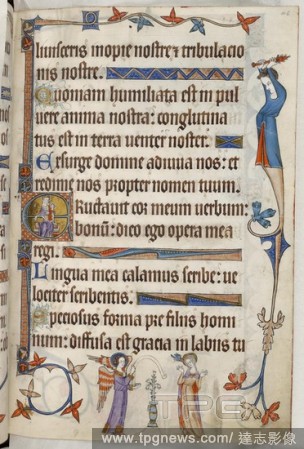 liuisceris inopie nostre & tribulacio
nis nostre.
Quoniam humiliata est in pul
uere anima nostra: conglutina
tus est in terra uenter noster.
Exsurge domine adiuua nos: et
redime nos propter nomen tuum.
Eructauit cor meum uerbum
bonum: dico ego opera mea
regi.
Lingua mea calamus scribe: ue
lociter scribentis.
Speciosus forma pre filiis homi
num: diffusa est gracia in labiis tu
TPG
www.tpgnews.com/ 達志影像